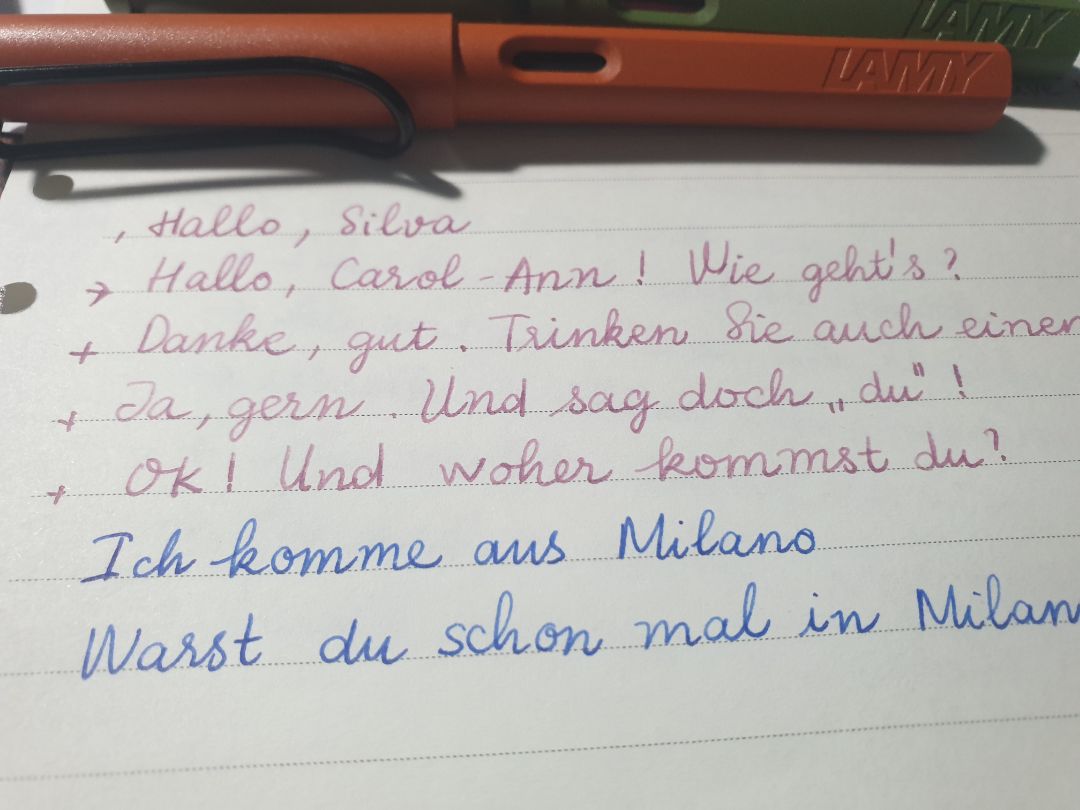 LAMY
LAMY
, Hallo, Silva
→ Hallo, Carol-Ann! Wie geht's?
+ Danke, gut. Trinken Sie auch einen
+ Ja, gern. Und sag doch „du"!
+ OK! Und woher kommst du?
Ich komme aus Milano
Warst du schon mal in Milan